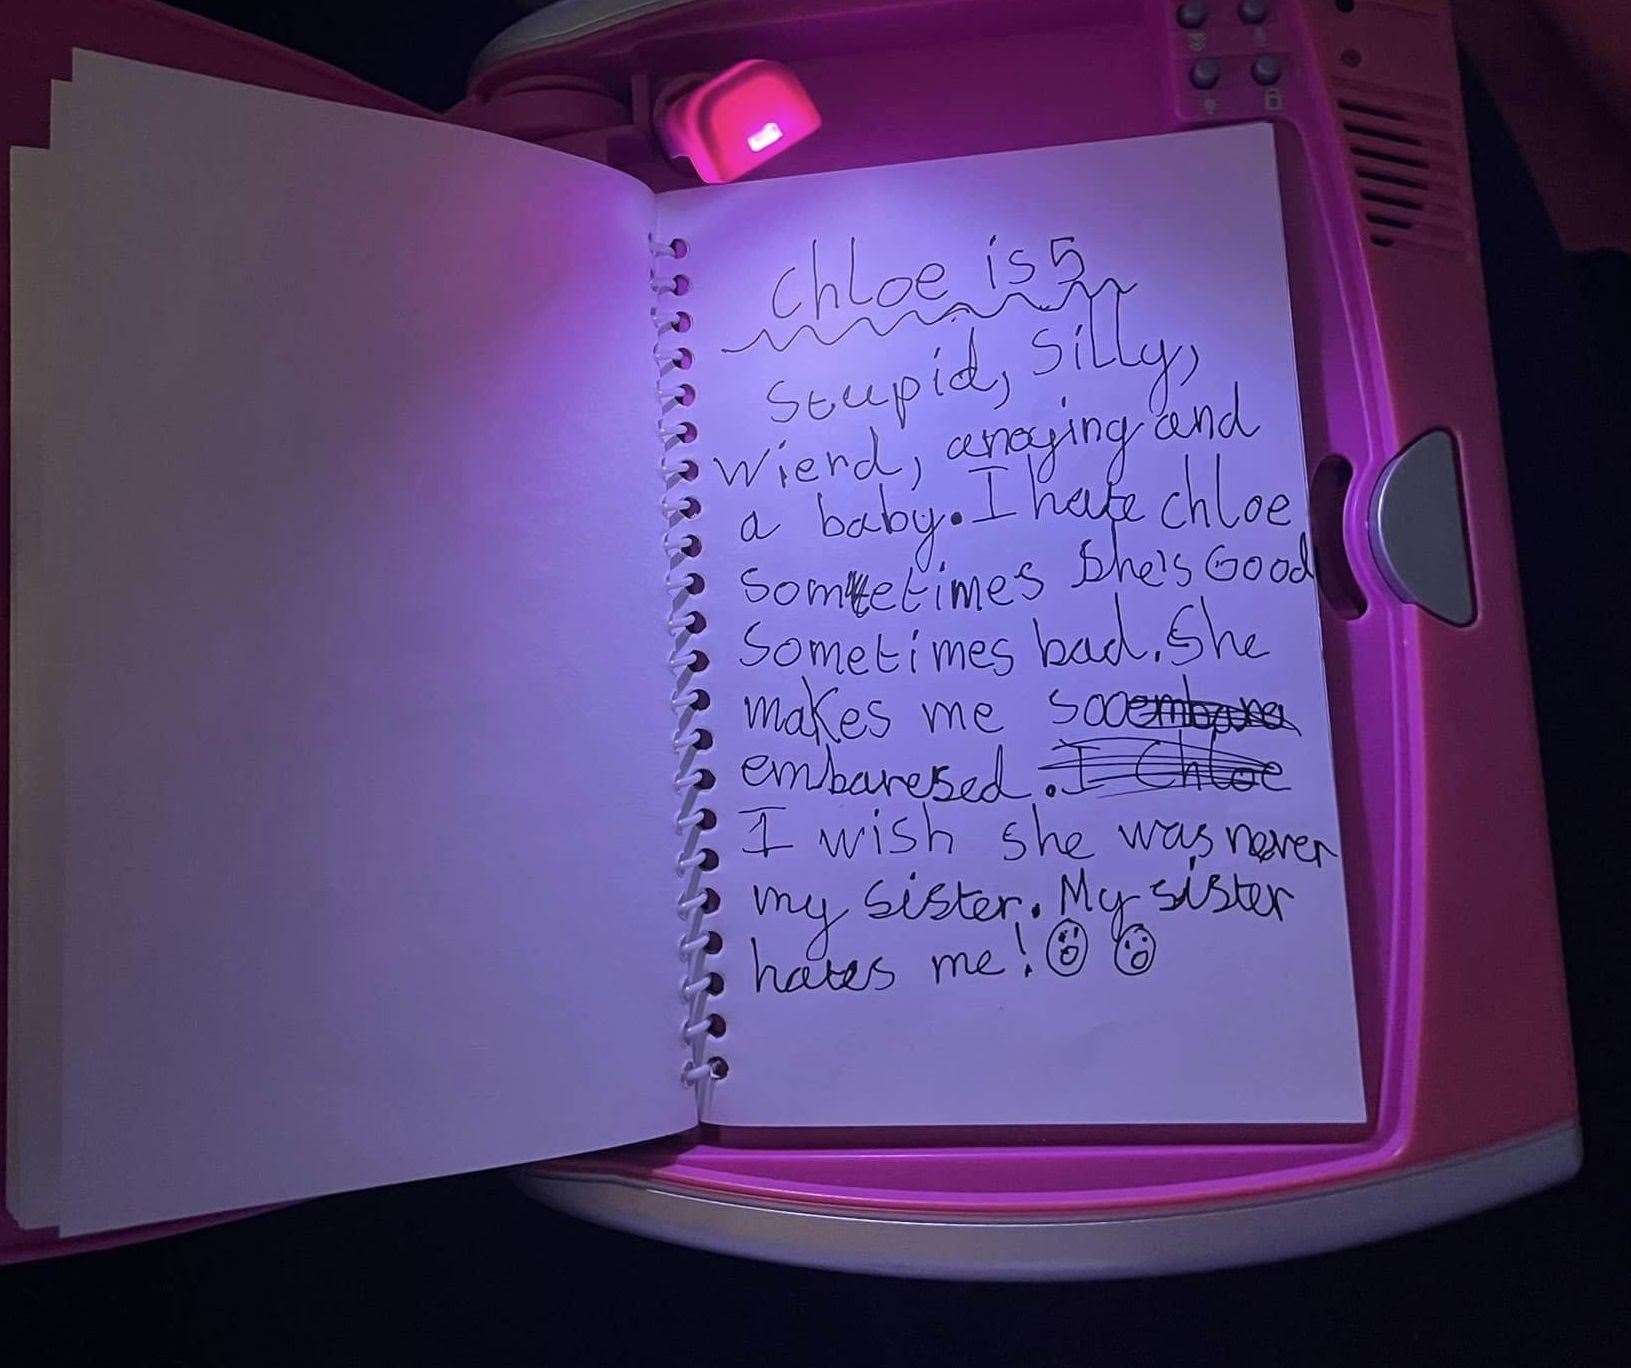 Chloe is 5
Stupid, Silly,
wierd, anoying and
a baby. I hate chloe
sometimes she's Good
sometimes bad. She
makes me sooembara
embaresed. I Chloe
I wish she was never
my sister. My sister
hates me!